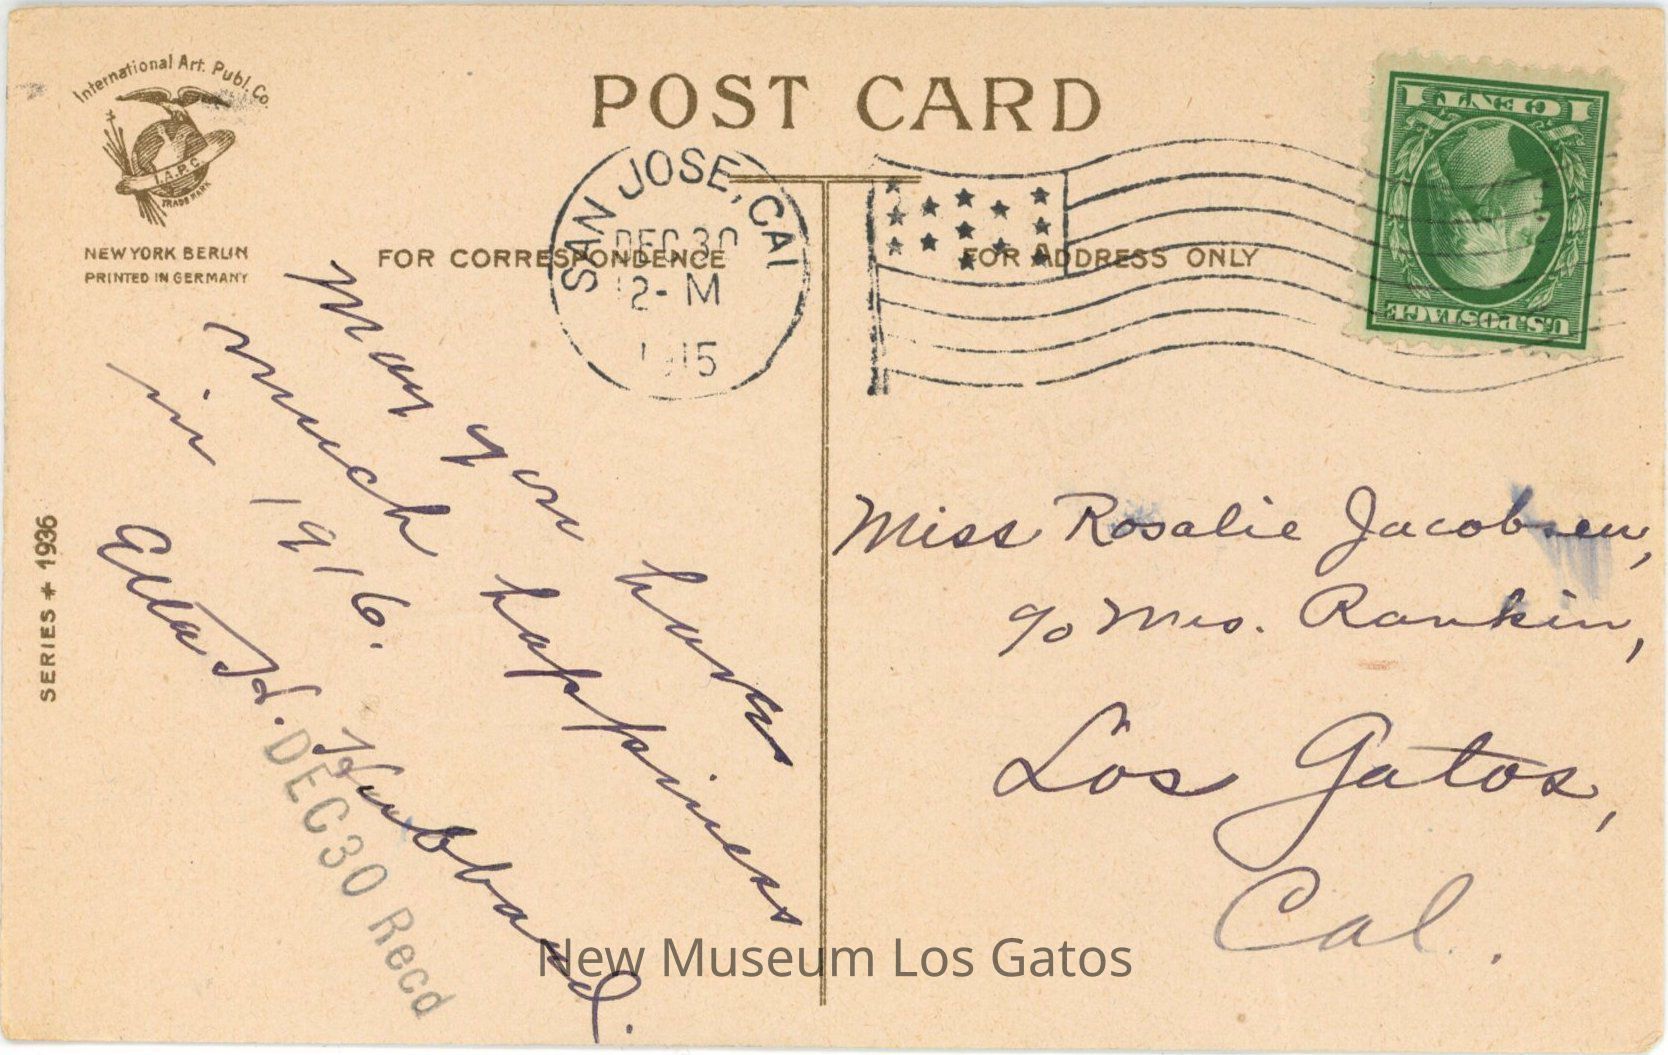 International Art. Publ. Co.
I.A.P.C.
TRADE MARK
NEW YORK BERLIN
PRINTED IN GERMANY
POST CARD
FOR CORRESPONDENCE
FOR ADDRESS ONLY
SAN JOSE, CAL
DEC 30
12-M
1915
1 CENT 1
U.S. POSTAGE
May you have
much happiness
in 1916.
H. Hubbard.
DEC 30 Recd
Miss Rosalie Jacobsen,
c/o Mrs. Rankin,
Los Gatos,
Cal.
SERIES + 1936
New Museum Los Gatos